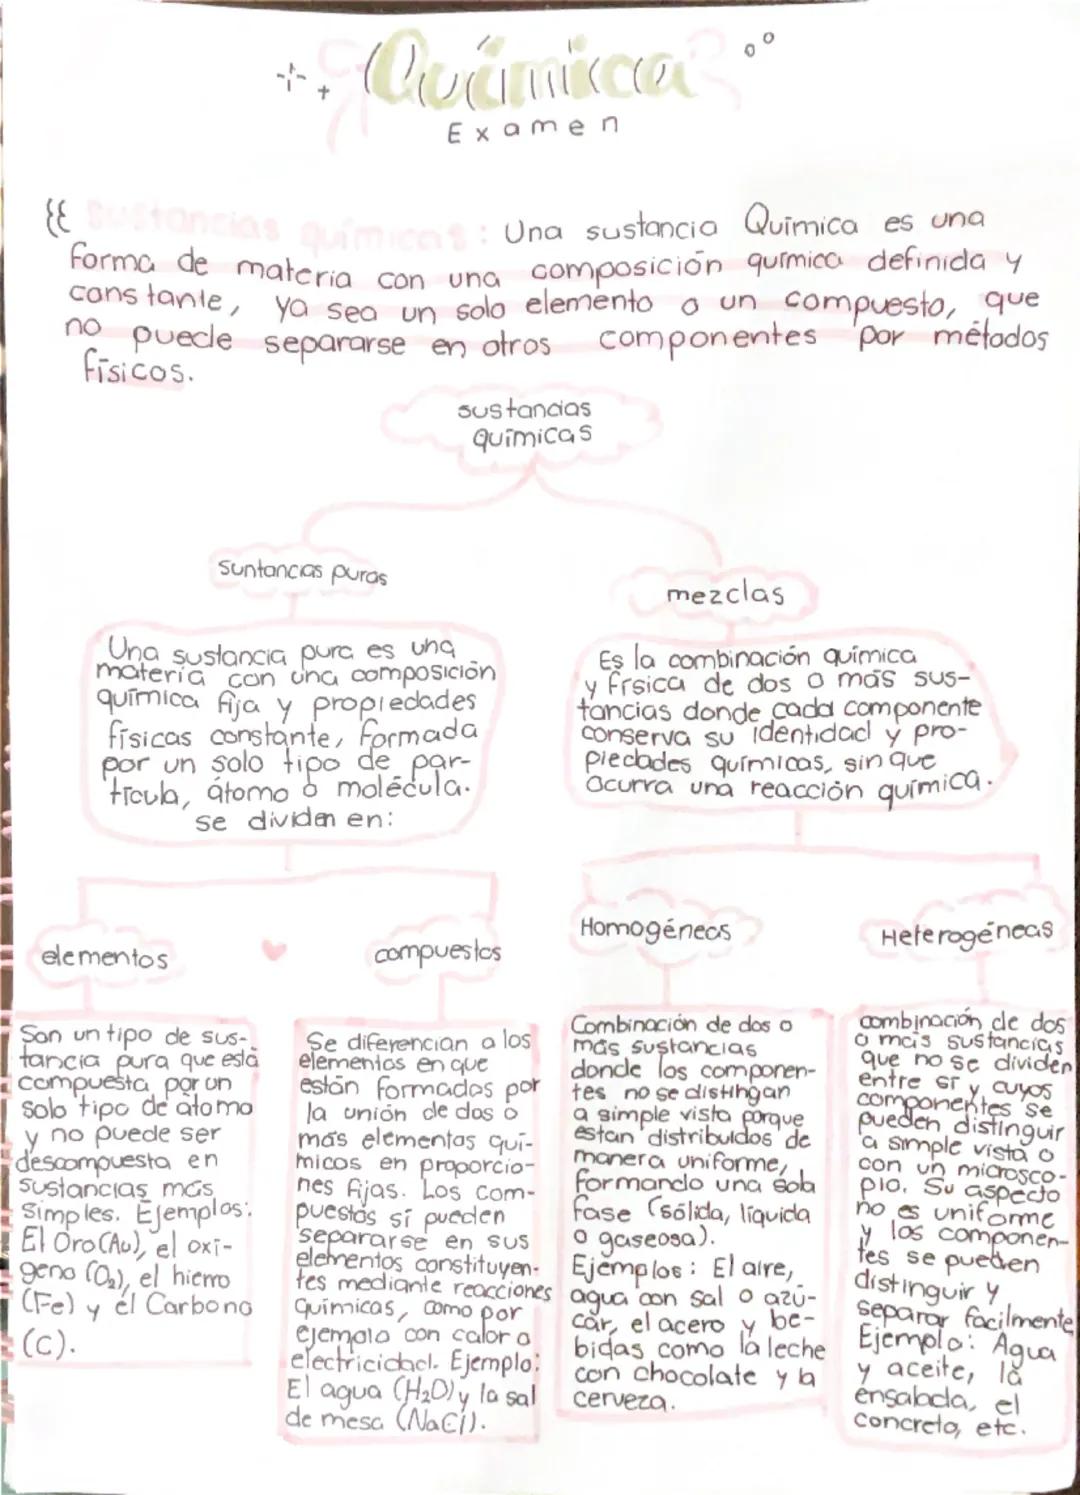 Química
Examen
Sustancias químicas: Una sustancia Química es una
forma de materia con una composición química definida y
constante, ya sea un solo elemento o un compuesto, que
no puede separarse en otros componentes por métodos
físicos.
sustancias
químicas
suntancias puras
mezclas
Una sustancia pura es una
materia con una composición
química fija y propiedades
físicas constante, formada
por un solo tipo de par-
tícula, átomo o molécula.
se dividen en:
Es la combinación química
y física de dos o más sus-
tancias donde cada componente
conserva su identidad y pro-
piedades químicas, sin que
ocurra una reacción química.
elementos
compuestos
Homogéneas
Heterogéneas
Son un tipo de sus-
tancia pura que está
compuesta por un
solo tipo de átomo
y no puede ser
descompuesta en
sustancias más
simples. Ejemplos:
El Oro (Au), el oxí-
geno (O₂), el hierro
(Fe) y el Carbono
(C).
Se diferencian a los
elementos en que
están formados por
la unión de dos o
más elementos quí-
micos en proporcio-
nes fijas. Los com-
puestos sí pueden
separarse en sus
elementos constituyen-
tes mediante reacciones
químicas, como por
ejemplo con calor o
electricidad. Ejemplo:
El agua (H₂O) y la sal
de mesa (NaCl).
Combinación de dos o
más sustancias
donde los componen-
tes no se distingan
a simple vista porque
están distribuidos de
manera uniforme,
formando una sola
fase (sólida, líquida
o gaseosa).
Ejemplos: El aire,
agua con sal o azú-
car, el acero y be-
bidas como la leche
con chocolate y la
cerveza.
combinación de dos
o más sustancias
que no se dividen
entre sí y cuyos
componentes se
pueden distinguir
a simple vista o
con un microsco-
pio. Su aspecto
no es uniforme
y los componen-
tes se pueden
distinguir y
separar facilmente
Ejemplo: Agua
y aceite, la
ensalada, el
concreto, etc.